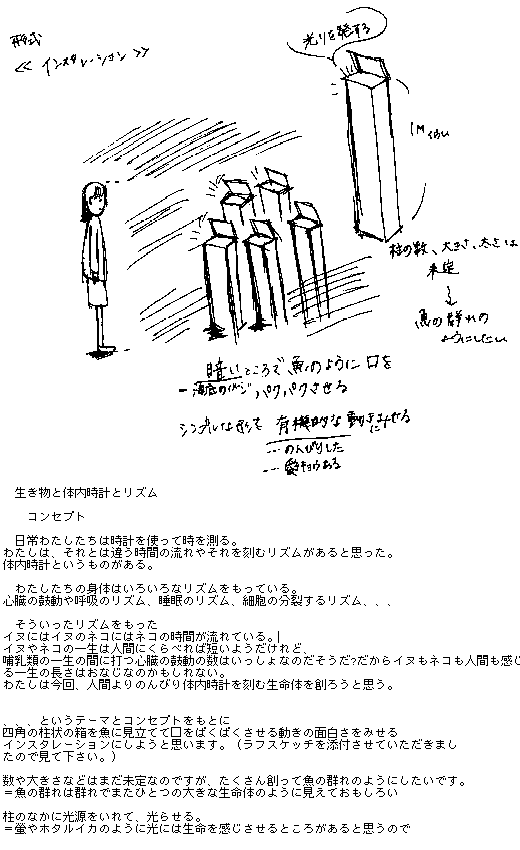 形式
<< インスタレーション >>
光りを発する
1M くらい
柱の数、大きさ、太さは
未定
魚の群れの
ようにしたい
暗いところで魚のように口を
パクパクさせる
シンプルな形を 有機的な動きにみせる
… のんびりした
… 愛キョウある
生き物と体内時計とリズム
コンセプト
日常わたしたちは時計を使って時を測る。
わたしは、それとは違う時間の流れやそれを刻むリズムがあると思った。
体内時計というものがある。
わたしたちの身体はいろいろなリズムをもっている。
心臓の鼓動や呼吸のリズム、睡眠のリズム、細胞の分裂するリズム、、、
そういったリズムをもった
イヌにはイヌのネコにはネコの時間が流れている。
イヌやネコの一生は人間にくらべれば短いようだけれど、
哺乳類の一生の間に打つ心臓の鼓動の数はいっしょなのだそうだ?だからイヌもネコも人間も感じ
る一生の長さはおなじなのかもしれない。
わたしは今回、人間よりのんびり体内時計を刻む生命体を創ろうと思う。
、、、というテーマとコンセプトをもとに
四角の柱状の箱を魚に見立てて口をぱくぱくさせる動きの面白さをみせる
インスタレーションにしようと思います。（ラフスケッチを添付させていただきまし
たので見て下さい。）
数や大きさなどはまだ未定なのですが、たくさん創って魚の群れのようにしたいです。
＝魚の群れは群れでまたひとつの大きな生命体のように見えておもしろい
柱のなかに光源をいれて、光らせる。
＝螢やホタルイカのように光には生命を感じさせるところがあると思うので